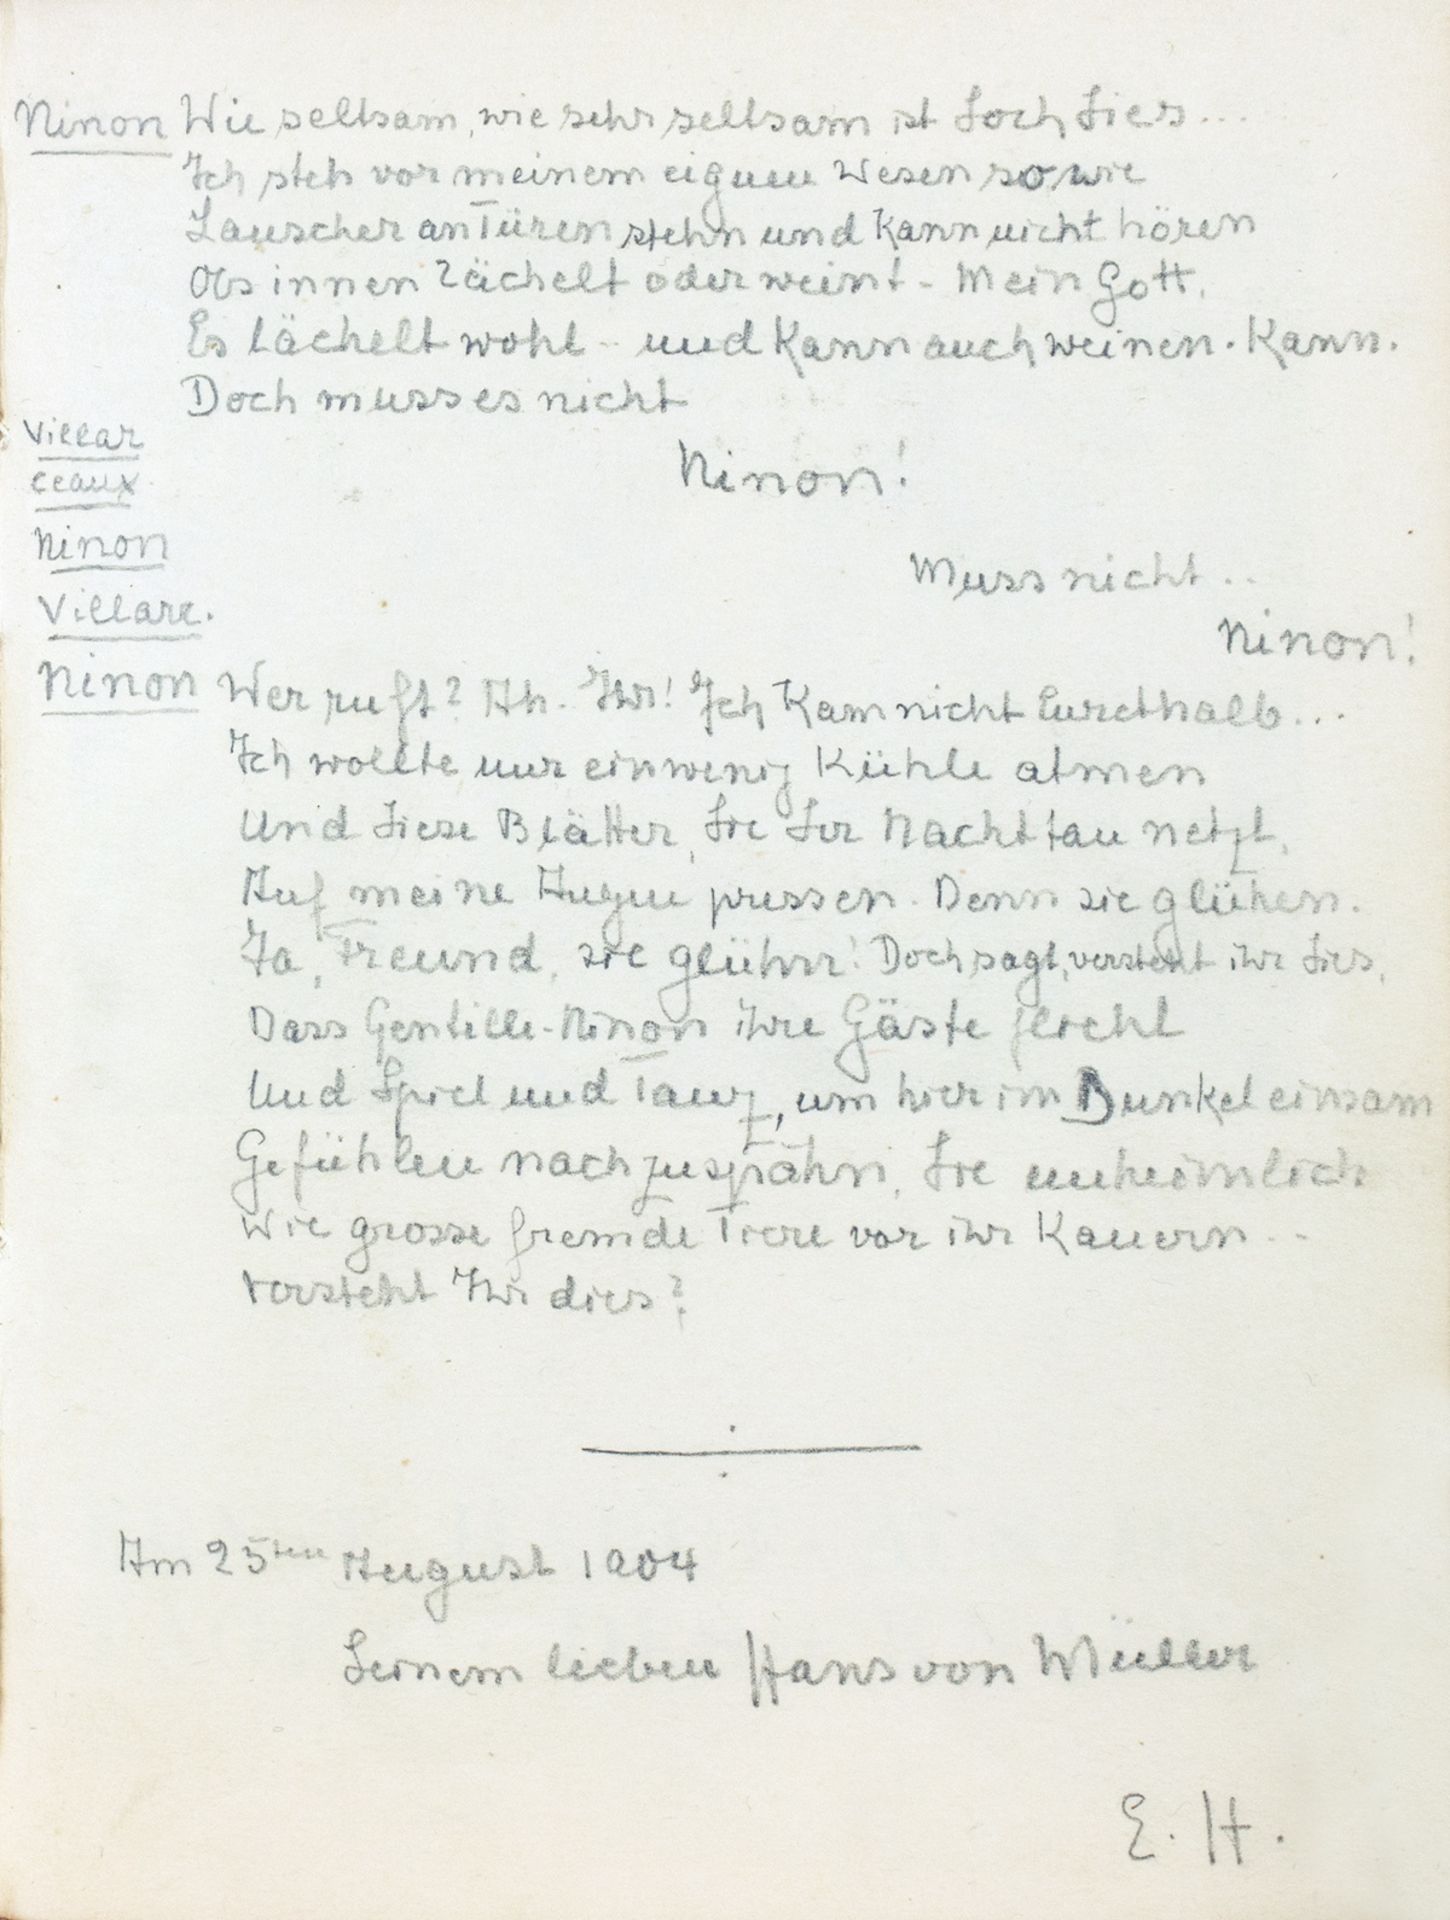 Ninon Wie seltsam, wie sehr seltsam ist doch dies...
Ich steh vor meinem eignen Wesen so wie
Lauscher an Türen stehn und kann nicht hören
Obs innen lächelt oder weint - Mein Gott,
Es lächelt wohl - und kann auch weinen. Kann.
Doch muss es nicht
Villar
ceaux
Ninon!
Ninon
Muss nicht..
Villarc.
Ninon!
Ninon Wer ruft? Ah. Ihr! Ich kam nicht Eurethalb...
Ich wollte nur ein wenig Kühle atmen
Und diese Blätter, die der Nachttau netzt,
Auf meine Augen pressen. Denn sie glühen.
Ja, Freund, sie glühn! Doch sagt, versteht ihr dies,
Dass Gentille-Ninon ihre Gäste flieht
Und Spiel und Tanz, um hier im Dunkel einsam
Gefühlen nachzuspähn, die unheimlich
Wie grosse fremde Tiere vor ihr kauern..
Versteht Ihr dies?
Am 25ten August 1904
Seinem lieben Hans von Müller
E. H.